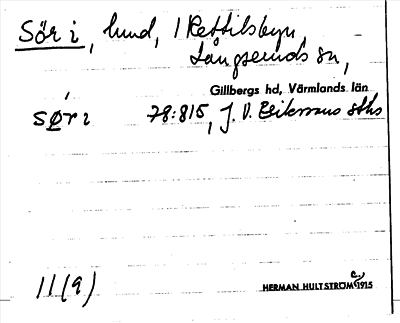 Sör i, hund, 1 Kettilsbyn,
Långseruds sn,
Gillbergs hd, Värmlands län
sø̀r i 78:815, J. V. Erikssons sths
11(9) HERMAN HULTSTRÖM 1915